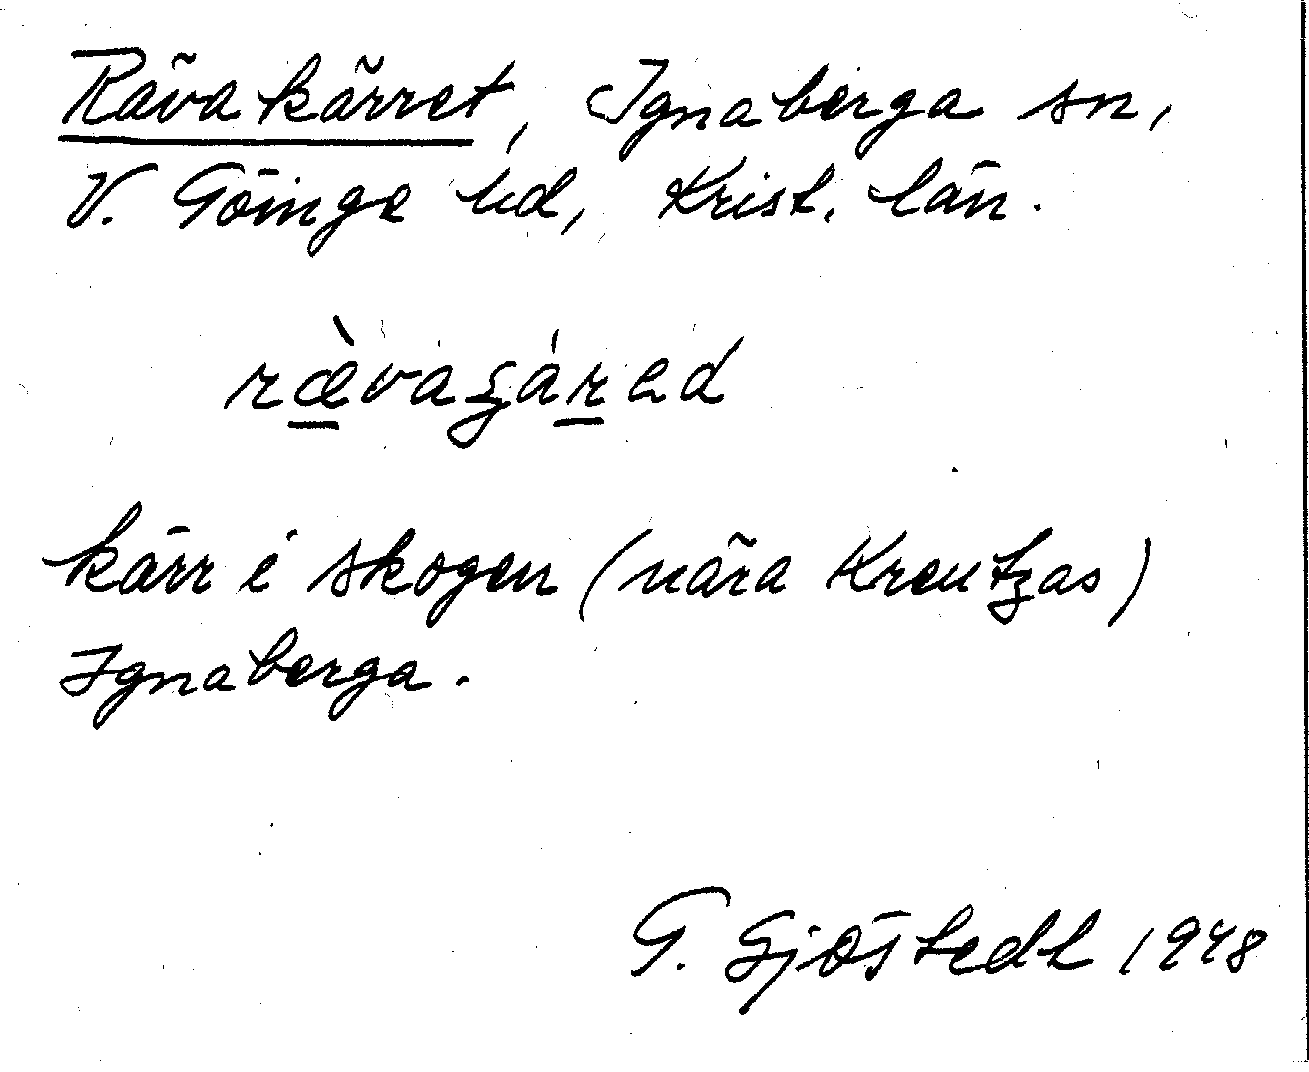 Rävakärret, Ignaberga sn,
V. Göinge hd, Krist. län.
kärr i skogen (nära Kreutzas)
Ignaberga.
G. Sjöstedt 1948